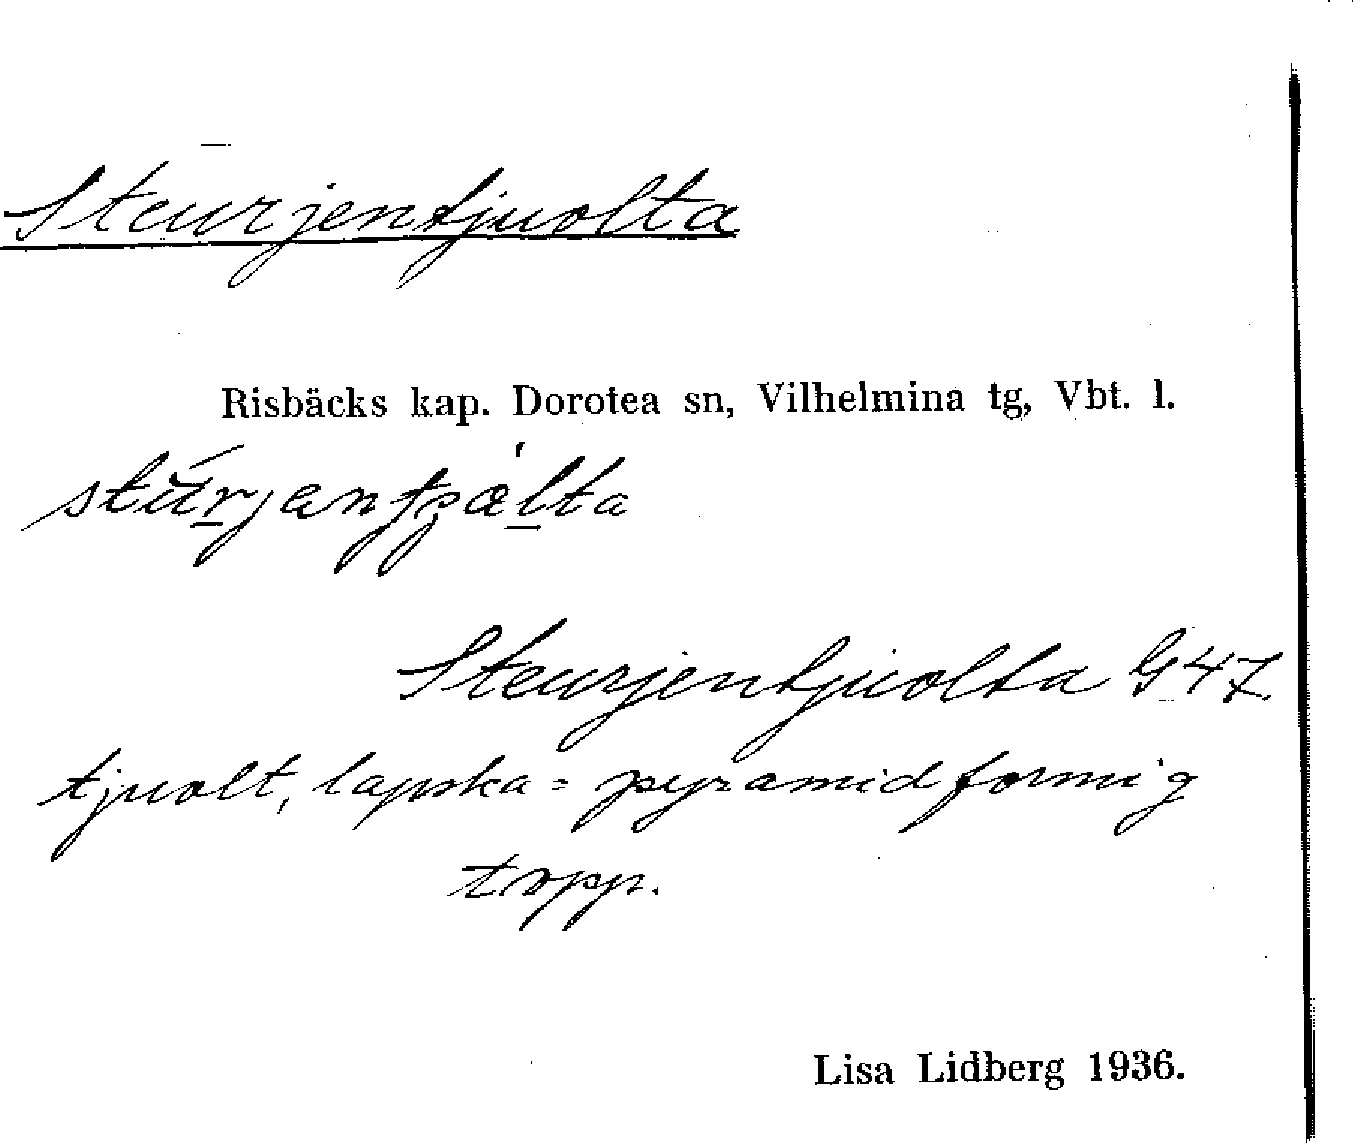 Steurjentjuolta
Risbäcks kap. Dorotea sn, Vilhelmina tg, Vbt. l.
Steurjentjuolta G47
tjuolt, lapska = pyramidformig
topp.
Lisa Lidberg 1936.